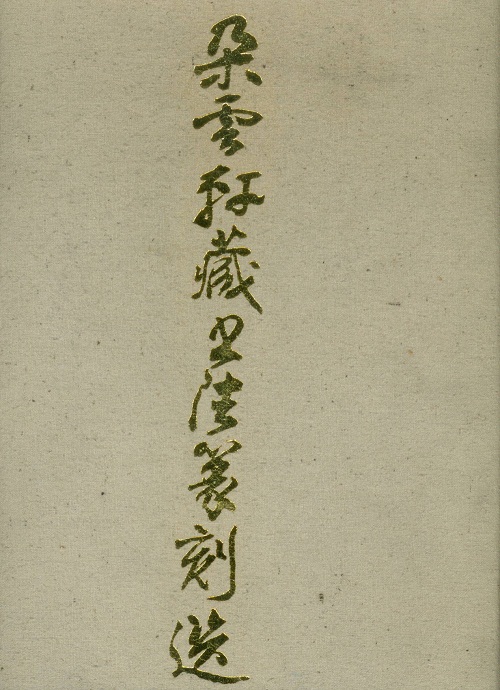 朵雲軒藏书法篆刻選